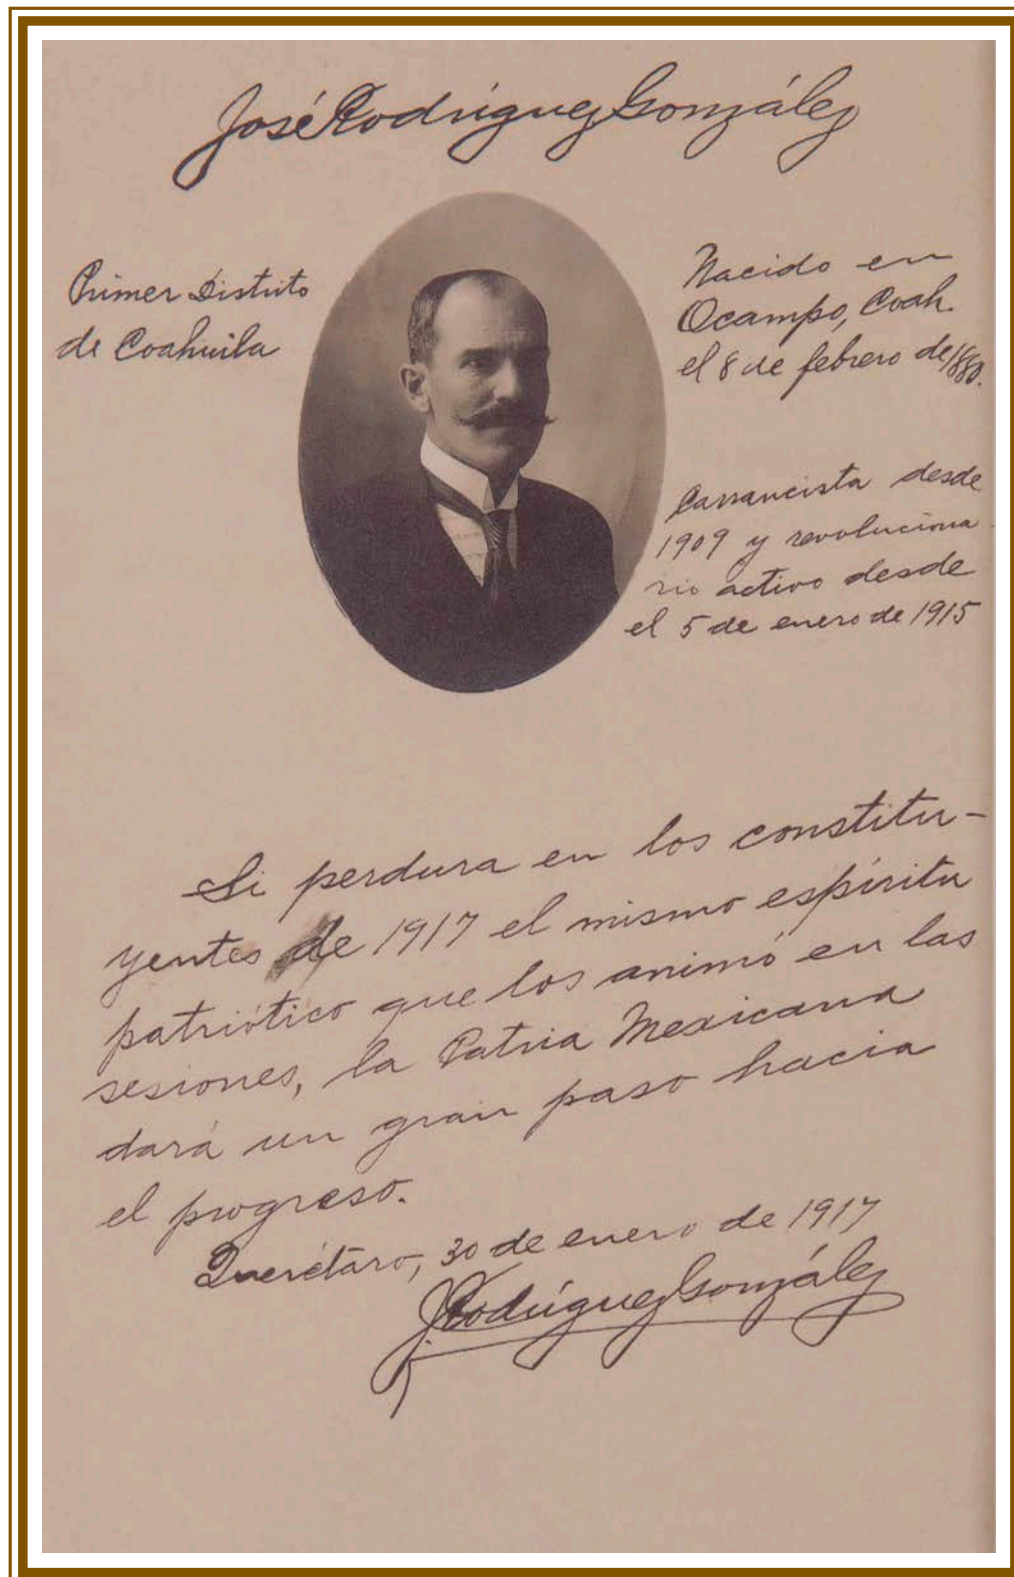 José Rodríguez González
Primer Distrito
de Coahuila
Nacido en
Ocampo, Coah.
el 8 de febrero de 1880.
Carrancista desde
1909 y revoluciona
rio activo desde
el 5 de enero de 1915
Si perdura en los constitu-
yentes de 1917 el mismo espíritu
patriótico que los animó en las
sesiones, la Patria Mexicana
dará un gran paso hacia
el progreso.
Querétaro, 30 de enero de 1917
J. Rodríguez González